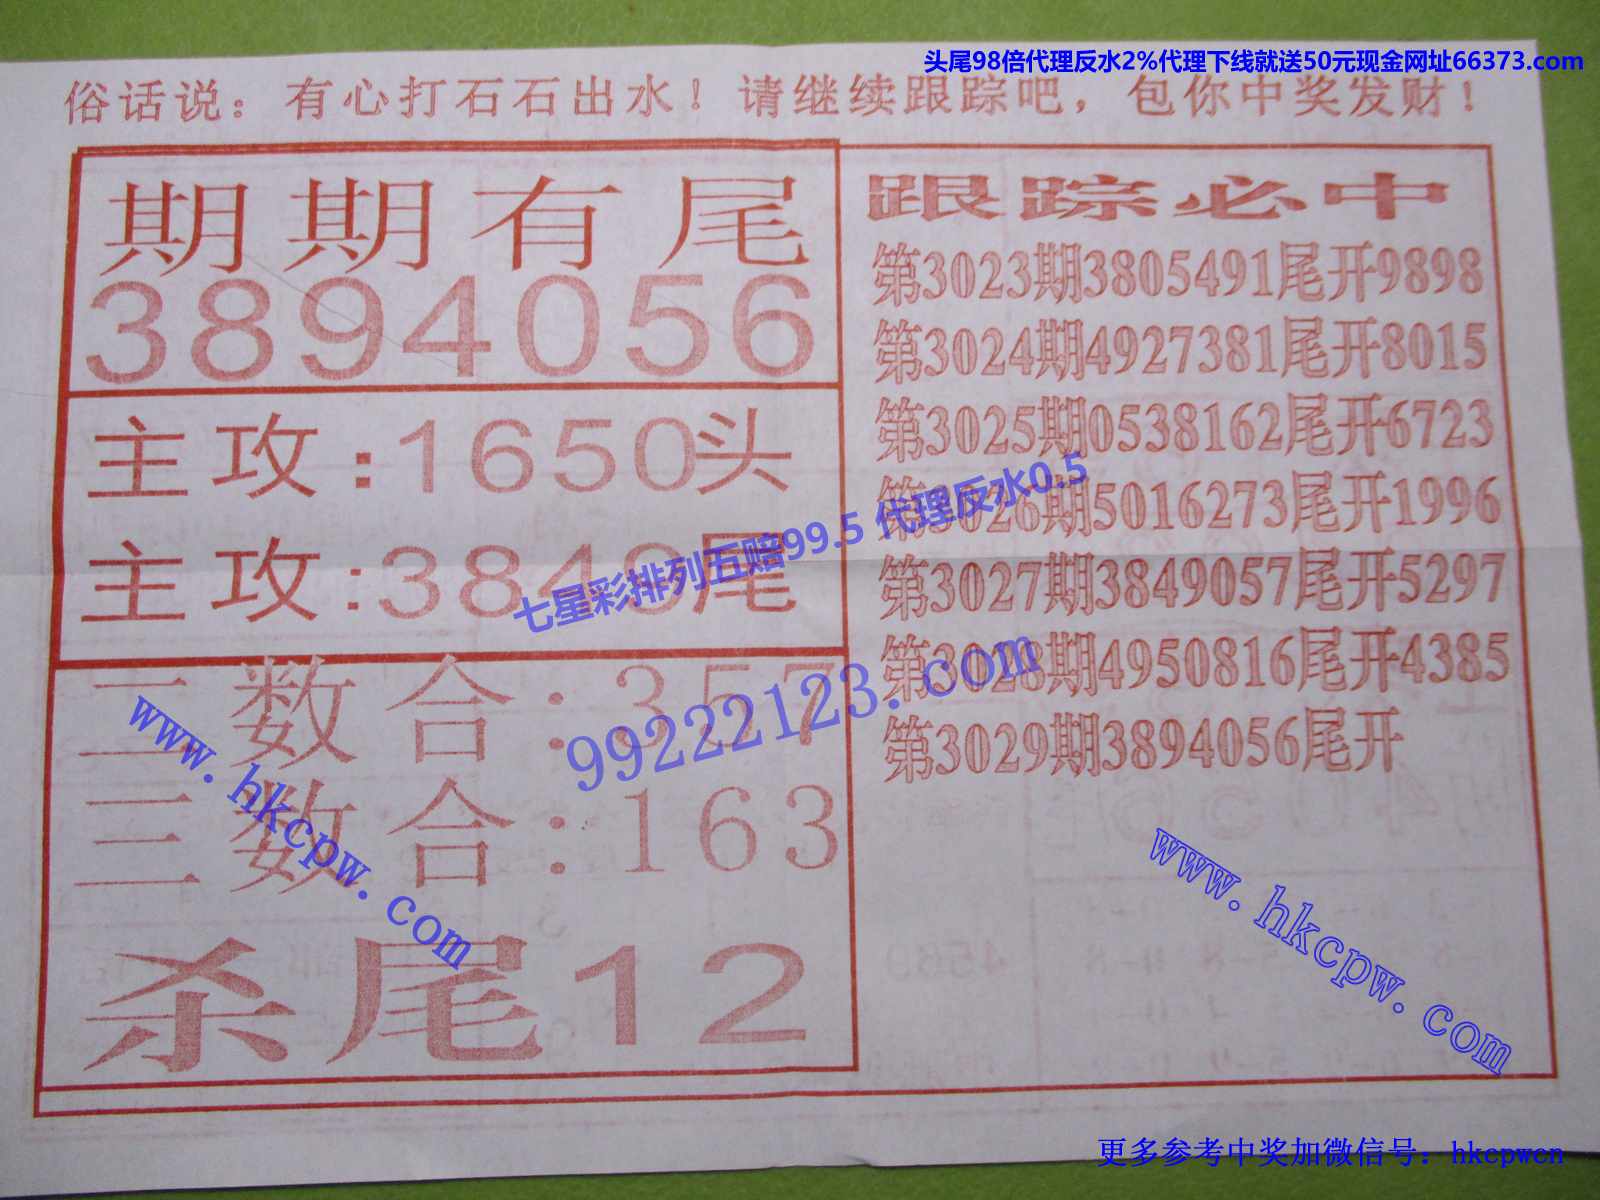 头尾98倍代理反水2%代理下线就送50元现金网址66373.com
俗话说：有心打石石出水！请继续跟踪吧，包你中奖发财！
期期有尾
3894056
主攻：1650头
主攻：3849尾
二数合：357
三数合：163
杀尾12
跟踪必中
第3023期3805491尾开9898
第3024期4927381尾开8015
第3025期0538162尾开6723
第3026期5016273尾开1996
第3027期3849057尾开5297
第3028期4950816尾开4385
第3029期3894056尾开
七星彩排列五赔99.5 代理反水0.5
99222123.com
www.hkcpw.com
www.hkcpw.com
更多参考中奖加微信号：hkcpwcn